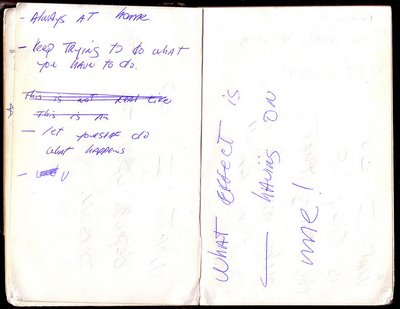 - Always at home
- Keep Trying to do what
you have to do.
This is not real like
This is
- let yourself do
what happens
-
WHAT EFFECT IS
HAVING ON
me!